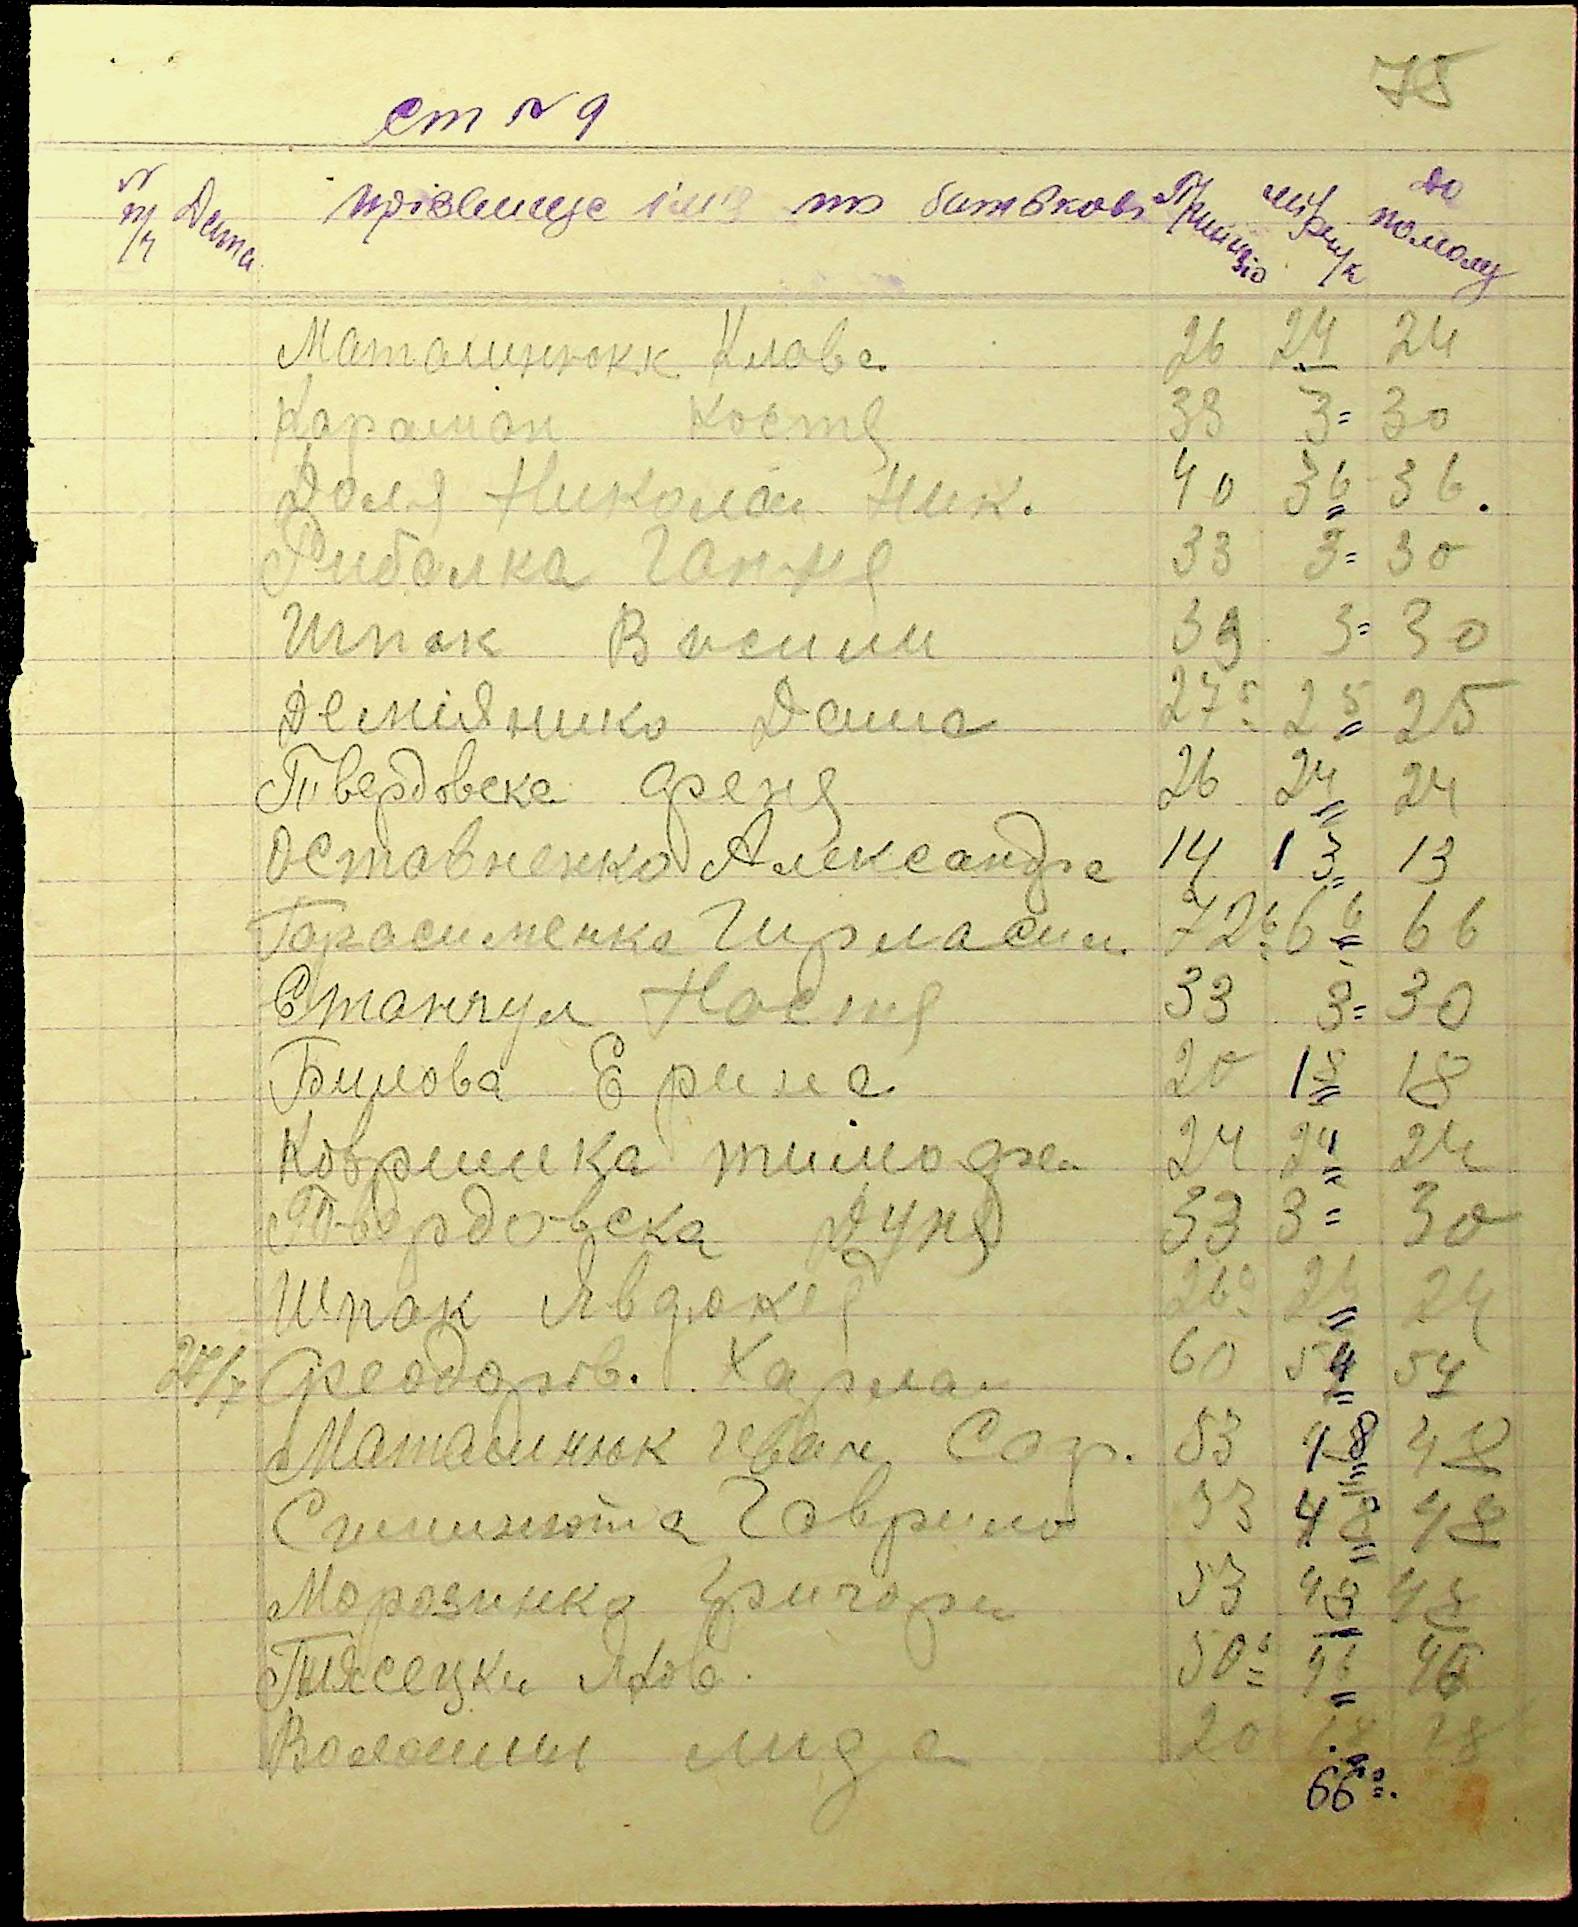 75
ст № 9
№ п/ч Дата прізвище імя по батькові пшиницю мірчук до помолу
Маталинюкк Клава 26 24 24
Караман Костя 33 3= 30
Доля Николай Ник. 40 36 36.
Рибалка Гання 33 3= 30
Шпак Васили 33 3= 30
Деміянико Даша 27 5 2 5 25
Твердовска Френя 26 24 24
Оставненко Александра 14 1 3 13
Гарасименко Гирласим 72 6 6 6 66
Станчул Настя 33 3= 30
Билова Ерина 20 18 18
Коврышка тимофе 24 24 24
Твердовска Дуня 33 3= 30
Шпак Явдокея 26 0 24 24
20/7 Феодоров. Харлам 60 54 54
Маталинюк Иван Сод. 53 48 48
Синишюта Гаврило 53 48 48
Марозинко Григори 53 48 48
Пясецки Яков. 50 6 46 46
Волошин лида 20 18 18
66 0